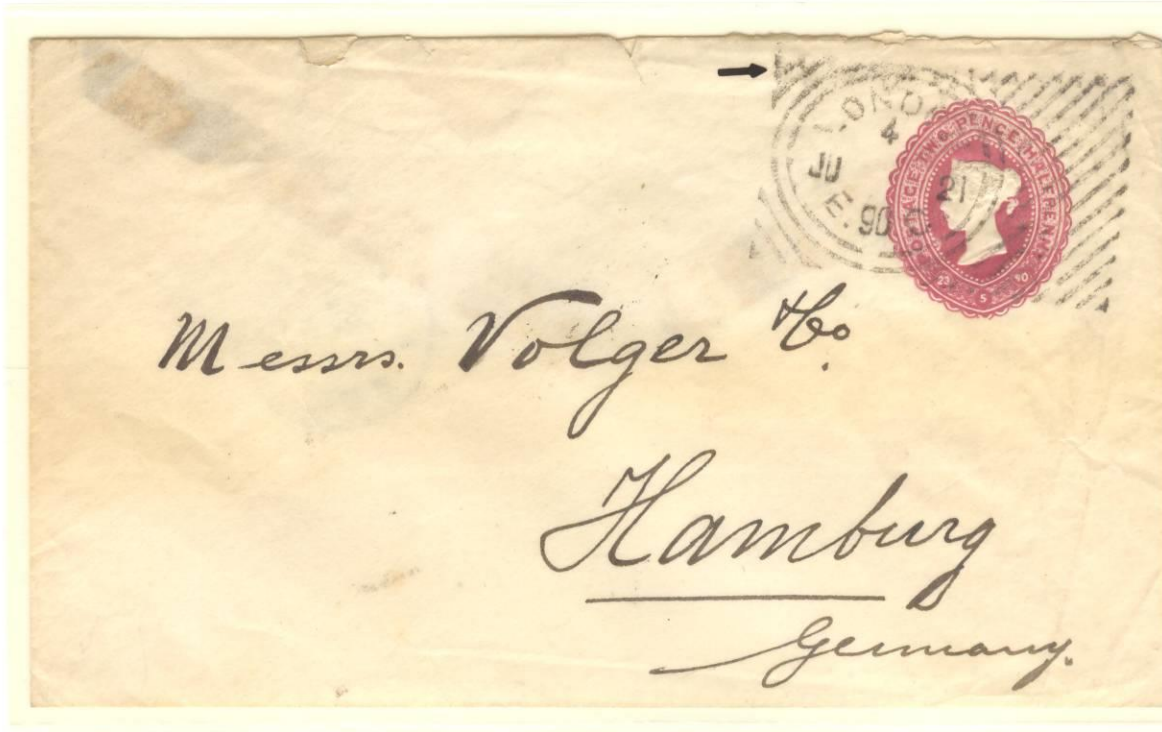 LONDO
4
JU 21
E.C
90
POSTAGE TWO PENCE HALFPENNY
Messrs. Volger & Co.
Hamburg
Germany.